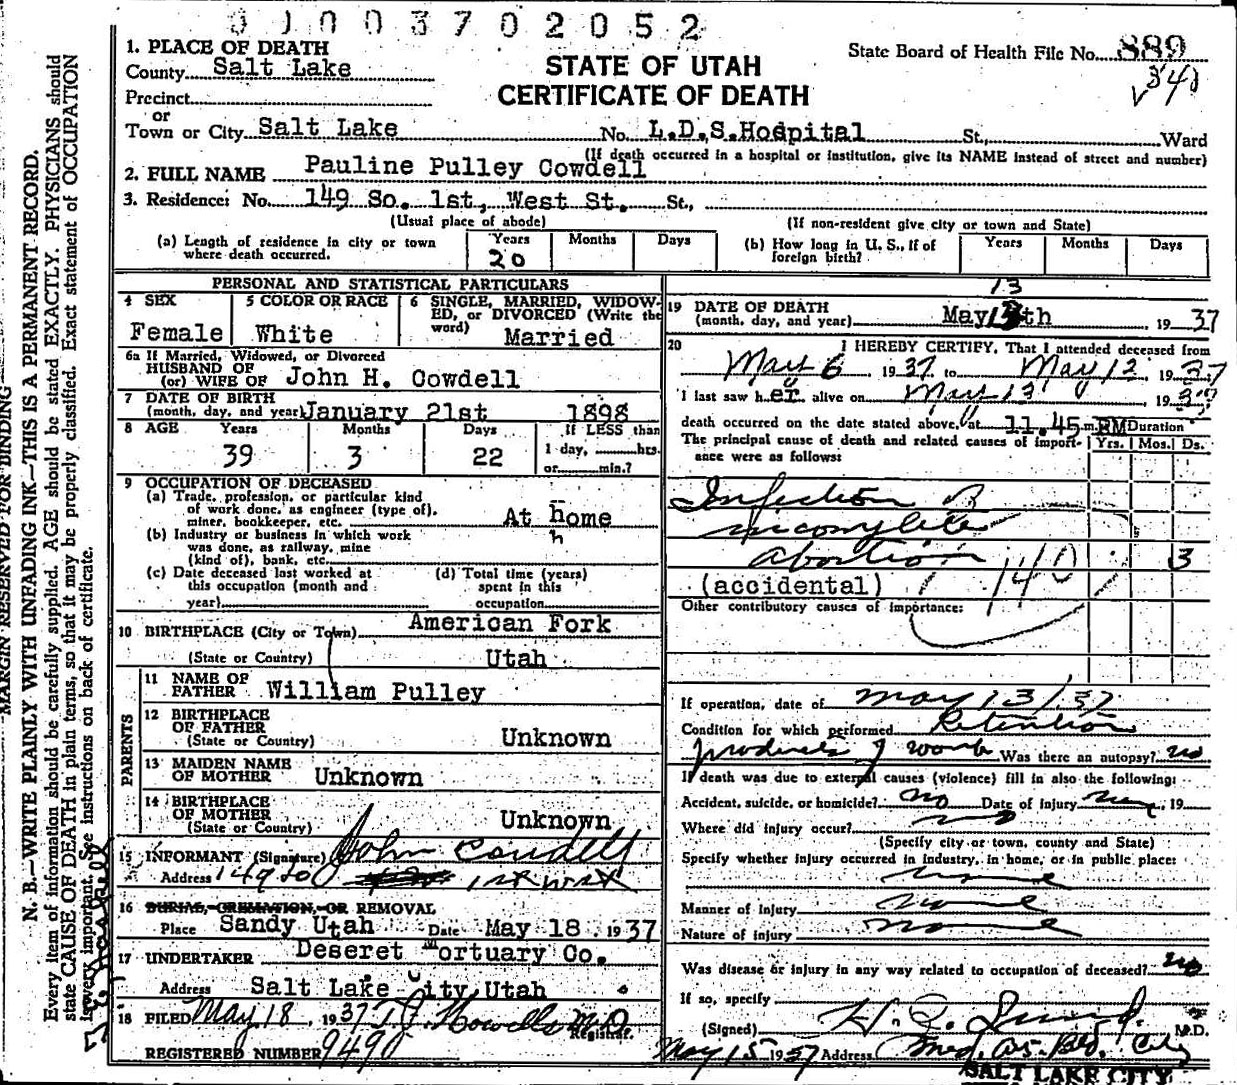 0 1 0 0 3 7 0 2 0 5 2
1. PLACE OF DEATH
County Salt Lake
STATE OF UTAH
CERTIFICATE OF DEATH
State Board of Health File No. 889
Precinct
or
Town or City Salt Lake No. L.D.S.Hospital St. Ward
(If death occurred in a hospital or institution, give its NAME instead of street and number)
2. FULL NAME Pauline Pulley Cowdell
3. Residence: No. 149 So. 1st, West St. St.,
(Usual place of abode) (If non-resident give city or town and State)
(a) Length of residence in city or town where death occurred. Years 20 Months Days
(b) How long in U. S., if of foreign birth? Years Months Days
PERSONAL AND STATISTICAL PARTICULARS
4 SEX Female
5 COLOR OR RACE White
6 SINGLE, MARRIED, WIDOWED, or DIVORCED (Write the word) Married
6a If Married, Widowed, or Divorced
HUSBAND OF
(or) WIFE OF John H. Cowdell
7 DATE OF BIRTH
(month, day, and year) January 21st 1898
8 AGE Years 39 Months 3 Days 22 If LESS than 1 day, hrs. or min.?
9 OCCUPATION OF DECEASED
(a) Trade, profession, or particular kind
of work done, as engineer (type of),
miner, bookkeeper, etc. At home
h
(b) Industry or business in which work
was done, as railway, mine
(kind of), bank, etc.
(c) Date deceased last worked at
this occupation (month and
year)
(d) Total time (years)
spent in this
occupation
10 BIRTHPLACE (City or Town) American Fork
(State or Country) Utah
PARENTS
11 NAME OF FATHER William Pulley
12 BIRTHPLACE OF FATHER
(State or Country) Unknown
13 MAIDEN NAME OF MOTHER Unknown
14 BIRTHPLACE OF MOTHER
(State or Country) Unknown
15 INFORMANT (Signature) John Cowdell
Address 149 So 1st West
16 BURIAL, CREMATION, OR REMOVAL
Place Sandy Utah Date May 18, 1937
17 UNDERTAKER Deseret Mortuary Co.
Address Salt Lake City, Utah
18 FILED May 18, 1937 T.J. Howells M.D.
Registrar.
REGISTERED NUMBER 9490
13
19 DATE OF DEATH
(month, day, and year) May 13th 1937
20 I HEREBY CERTIFY, That I attended deceased from
May 6 1937 to May 13, 1937
I last saw her alive on May 13 1937
death occurred on the date stated above, at 11.45 m. PM Duration
The principal cause of death and related causes of importance were as follows: Yrs. Mos. Ds.
Infection of
incomplete
abortion 3
(accidental)
140
Other contributory causes of importance:
If operation, date of May 13/37
Condition for which performed Retention
products of womb Was there an autopsy? no
If death was due to external causes (violence) fill in also the following:
Accident, suicide, or homicide? no Date of injury 19
Where did injury occur? no
(Specify city or town, county and State)
Specify whether injury occurred in industry, in home, or in public place:
none
Manner of injury none
Nature of injury none
Was disease or injury in any way related to occupation of deceased? no
If so, specify
(Signed) M.D.
May 15 1937 Address Med. Arts. Bld. City
SALT LAKE CITY
MARGIN RESERVED FOR BINDING
N. B.—WRITE PLAINLY WITH UNFADING INK—THIS IS A PERMANENT RECORD.
Every item of information should be carefully supplied. AGE should be stated EXACTLY. PHYSICIANS should
state CAUSE OF DEATH in plain terms, so that it may be properly classified. Exact statement of OCCUPATION
is very important. See instructions on back of certificate.